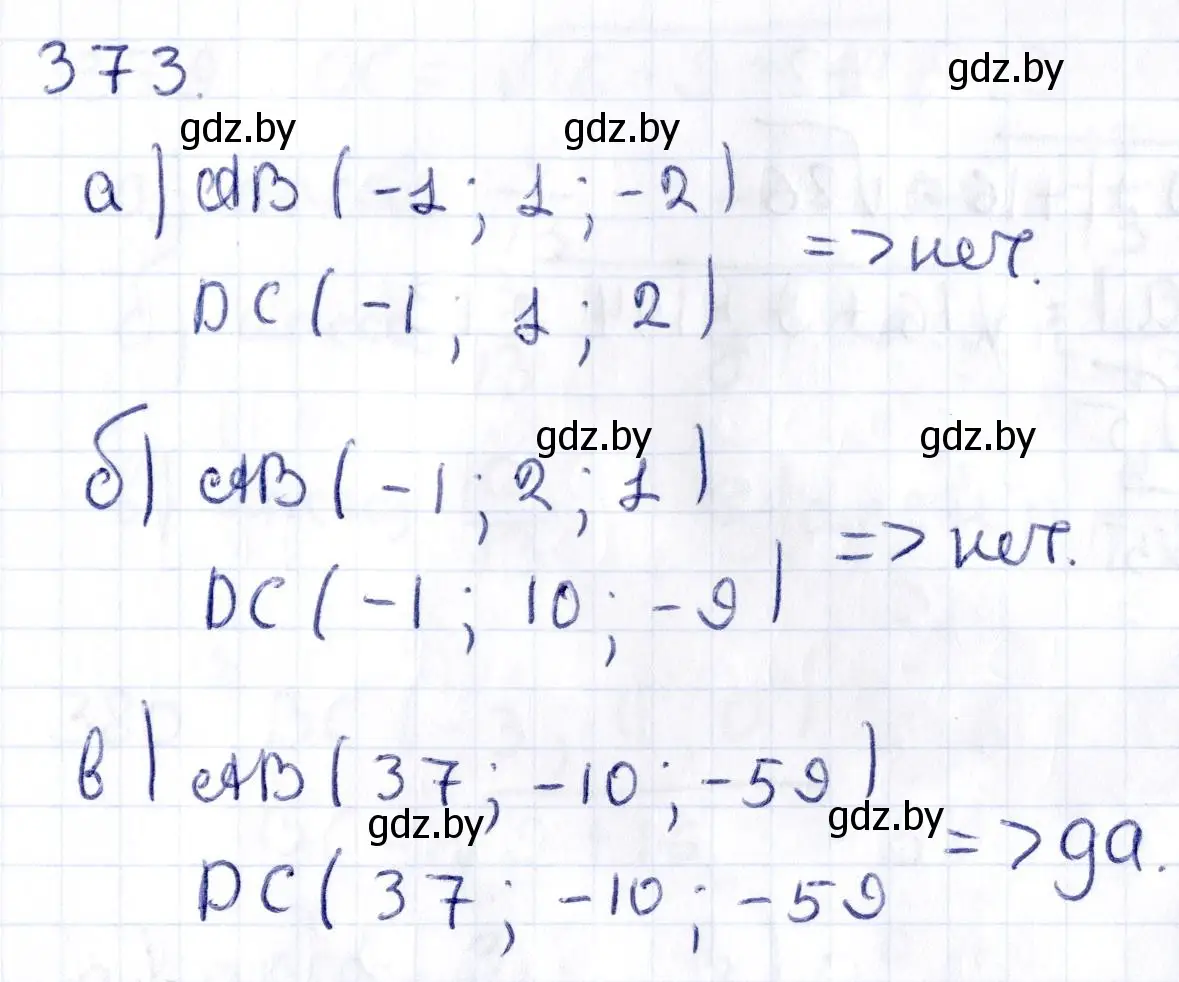 373.
gdz.by
gdz.by gdz.by
а) AB (-1; 1; -2)
=> нет.
DC (-1; 1; 2)
gdz.by gdz.by
б) AB (-1; 2; 1)
=> нет.
DC (-1; 10; -9)
в) AB (37; -10; -59)
gdz.by gdz.by
=> да.
DC (37; -10; -59